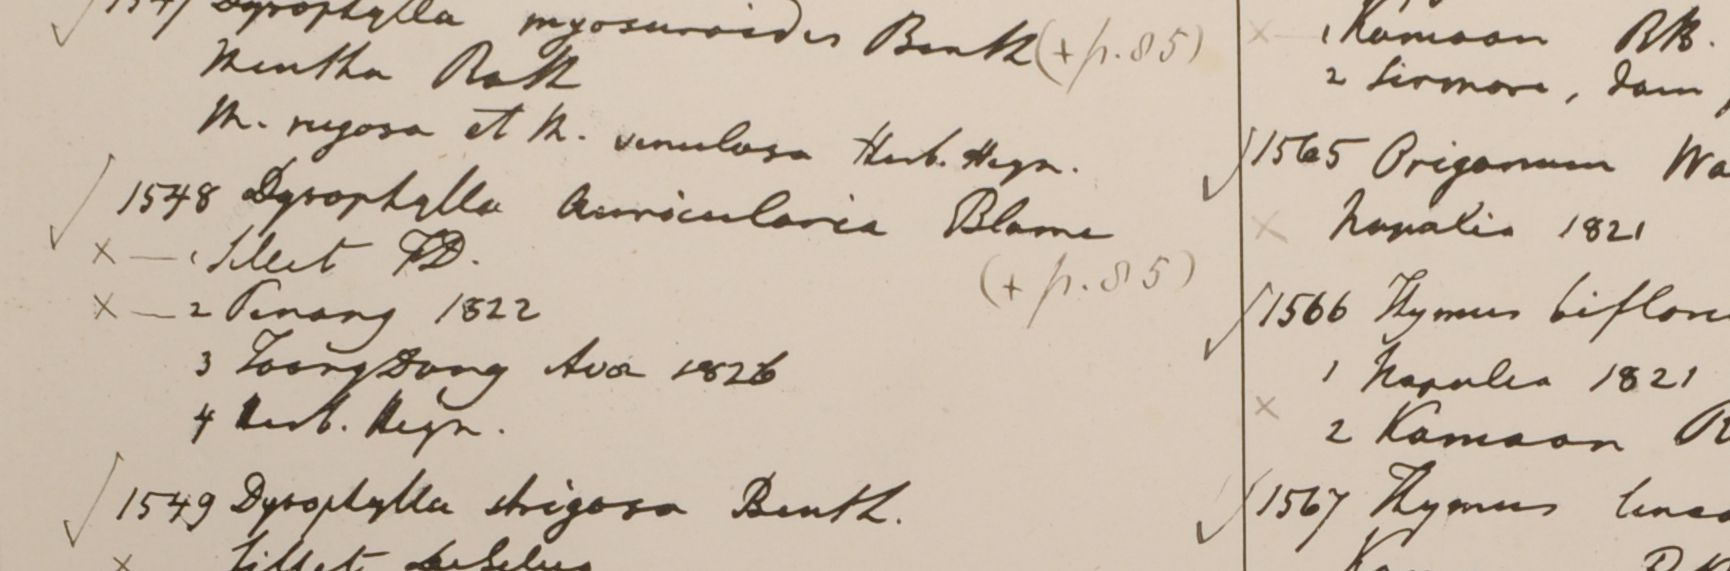 1547 Dysophylla myosuroides Benth (+ p. 85)
Mentha Roth
M. rugosa et M. Herb. Heyn.
1548 Dysophylla Auricularia Blume
(+ p. 85)
× — 1 Silhet FD.
× — 2 Penang 1822
3 Toong Dong Ava 1826
4 Herb. Heyn.
1549 Dysophylla strigosa Benth.
× Sillet
× — 1 Kamaon RB.
2 Sirmore,
1565 Origanum Wa
× Napalia 1821
1566 Thymus bifloru
1 Napalia 1821
× 2 Kamaon R
1567 Thymus linea